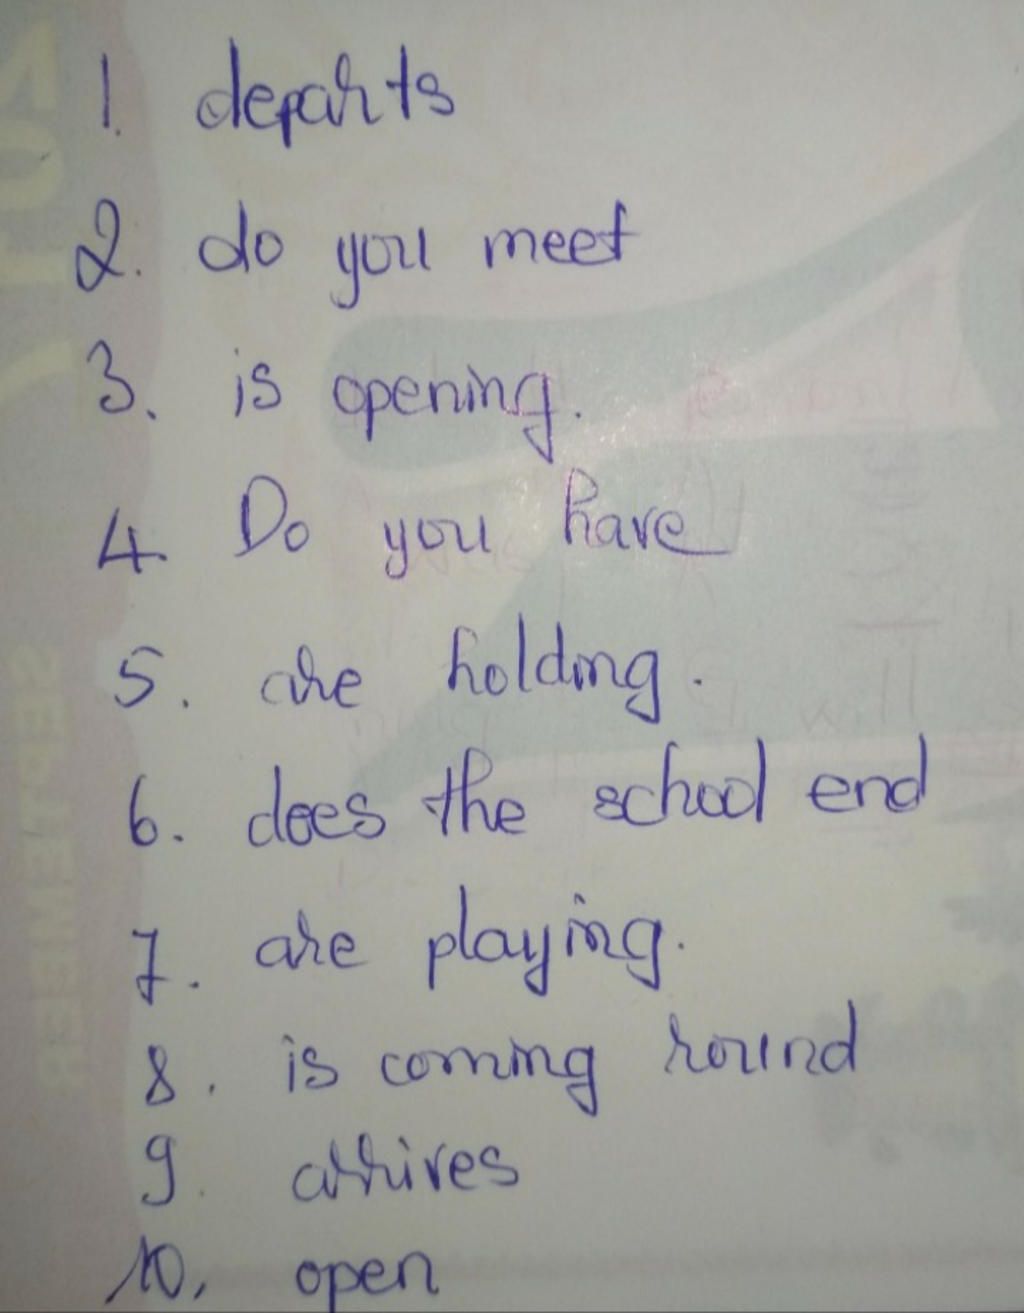 1. departs
2. do you meet
3. is opening.
4. Do you have
5. are holding.
6. does the school end
7. are playing.
8. is coming round
9. arrives
10. open
SEPTEMBER